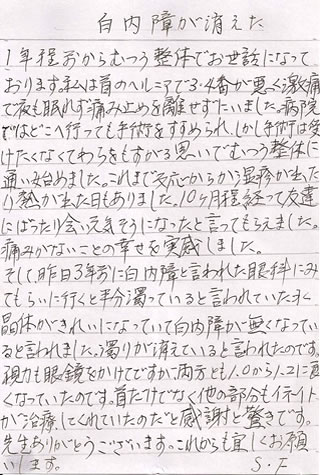 白内障が消えた
1年程前からむつう整体でお世話になって
おります。私は首のヘルニアで3・4番が悪く激痛
で夜も眠れず痛み止めを離せずにいました。病院
ではどこへ行っても手術をすすめられ、しかし手術は受
けたくなくてわらをもすがる思いでむつう整体に
通い始めました。これまで反応からかう湿疹が出た
り熱が出た日もありました。10ヶ月程経って友達
にばったり会い元気そうになったと言ってもらえました。
痛みがないことの幸せを実感しました。
そして昨日3年前に白内障と言われた眼科にみ
てもらいに行くと半分濁っていると言われていた水
晶体がきれいになっていて白内障が無くなってい
ると言われました。濁りが消えていると言われたのです。
視力も眼鏡をかけてですが、両方とも1.0から1.2に良
くなっていたのです。首だけでなく他の部分もイネイト
が治療してくれていたのだと感謝と驚きです。
先生ありがとうございます。これからも宜しくお願
いします。 S・F